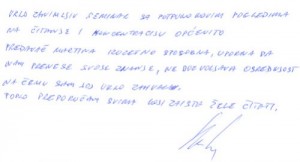 VRLO ZANIMLJIV SEMINAR SA POTPUNO NOVIM POGLEDIMA
NA ČITANJE I KONCENTRACIJU OPĆENITO
PREDAVAČ MARTINA IZUZETNO SPOSOBNA, UPORNA DA
NAM PRENESE SVOJE ZNANJE, NE DOZVOLJAVA OPUŠTENOST
NA ČEMU SAM JOJ VRLO ZAHVALAN.
TOPLO PREPORUČAM SVIMA KOJI ZAISTA ŽELE ČITATI.